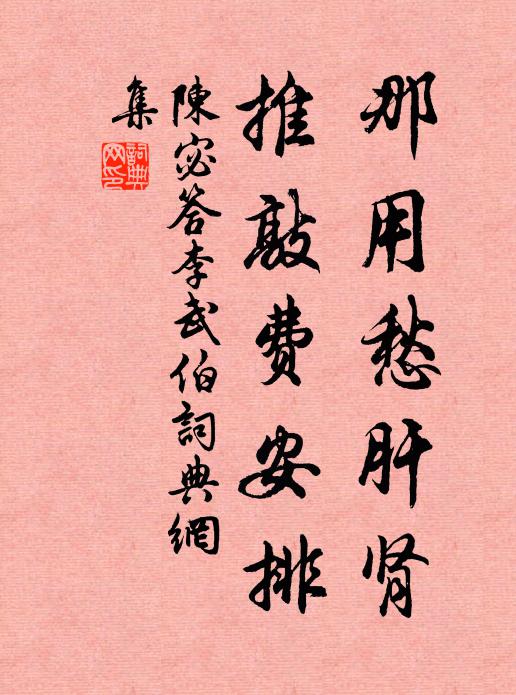 那用愁肝肾
推敲费安排
陳宓答李武伯詞典網
集
詞典
网印